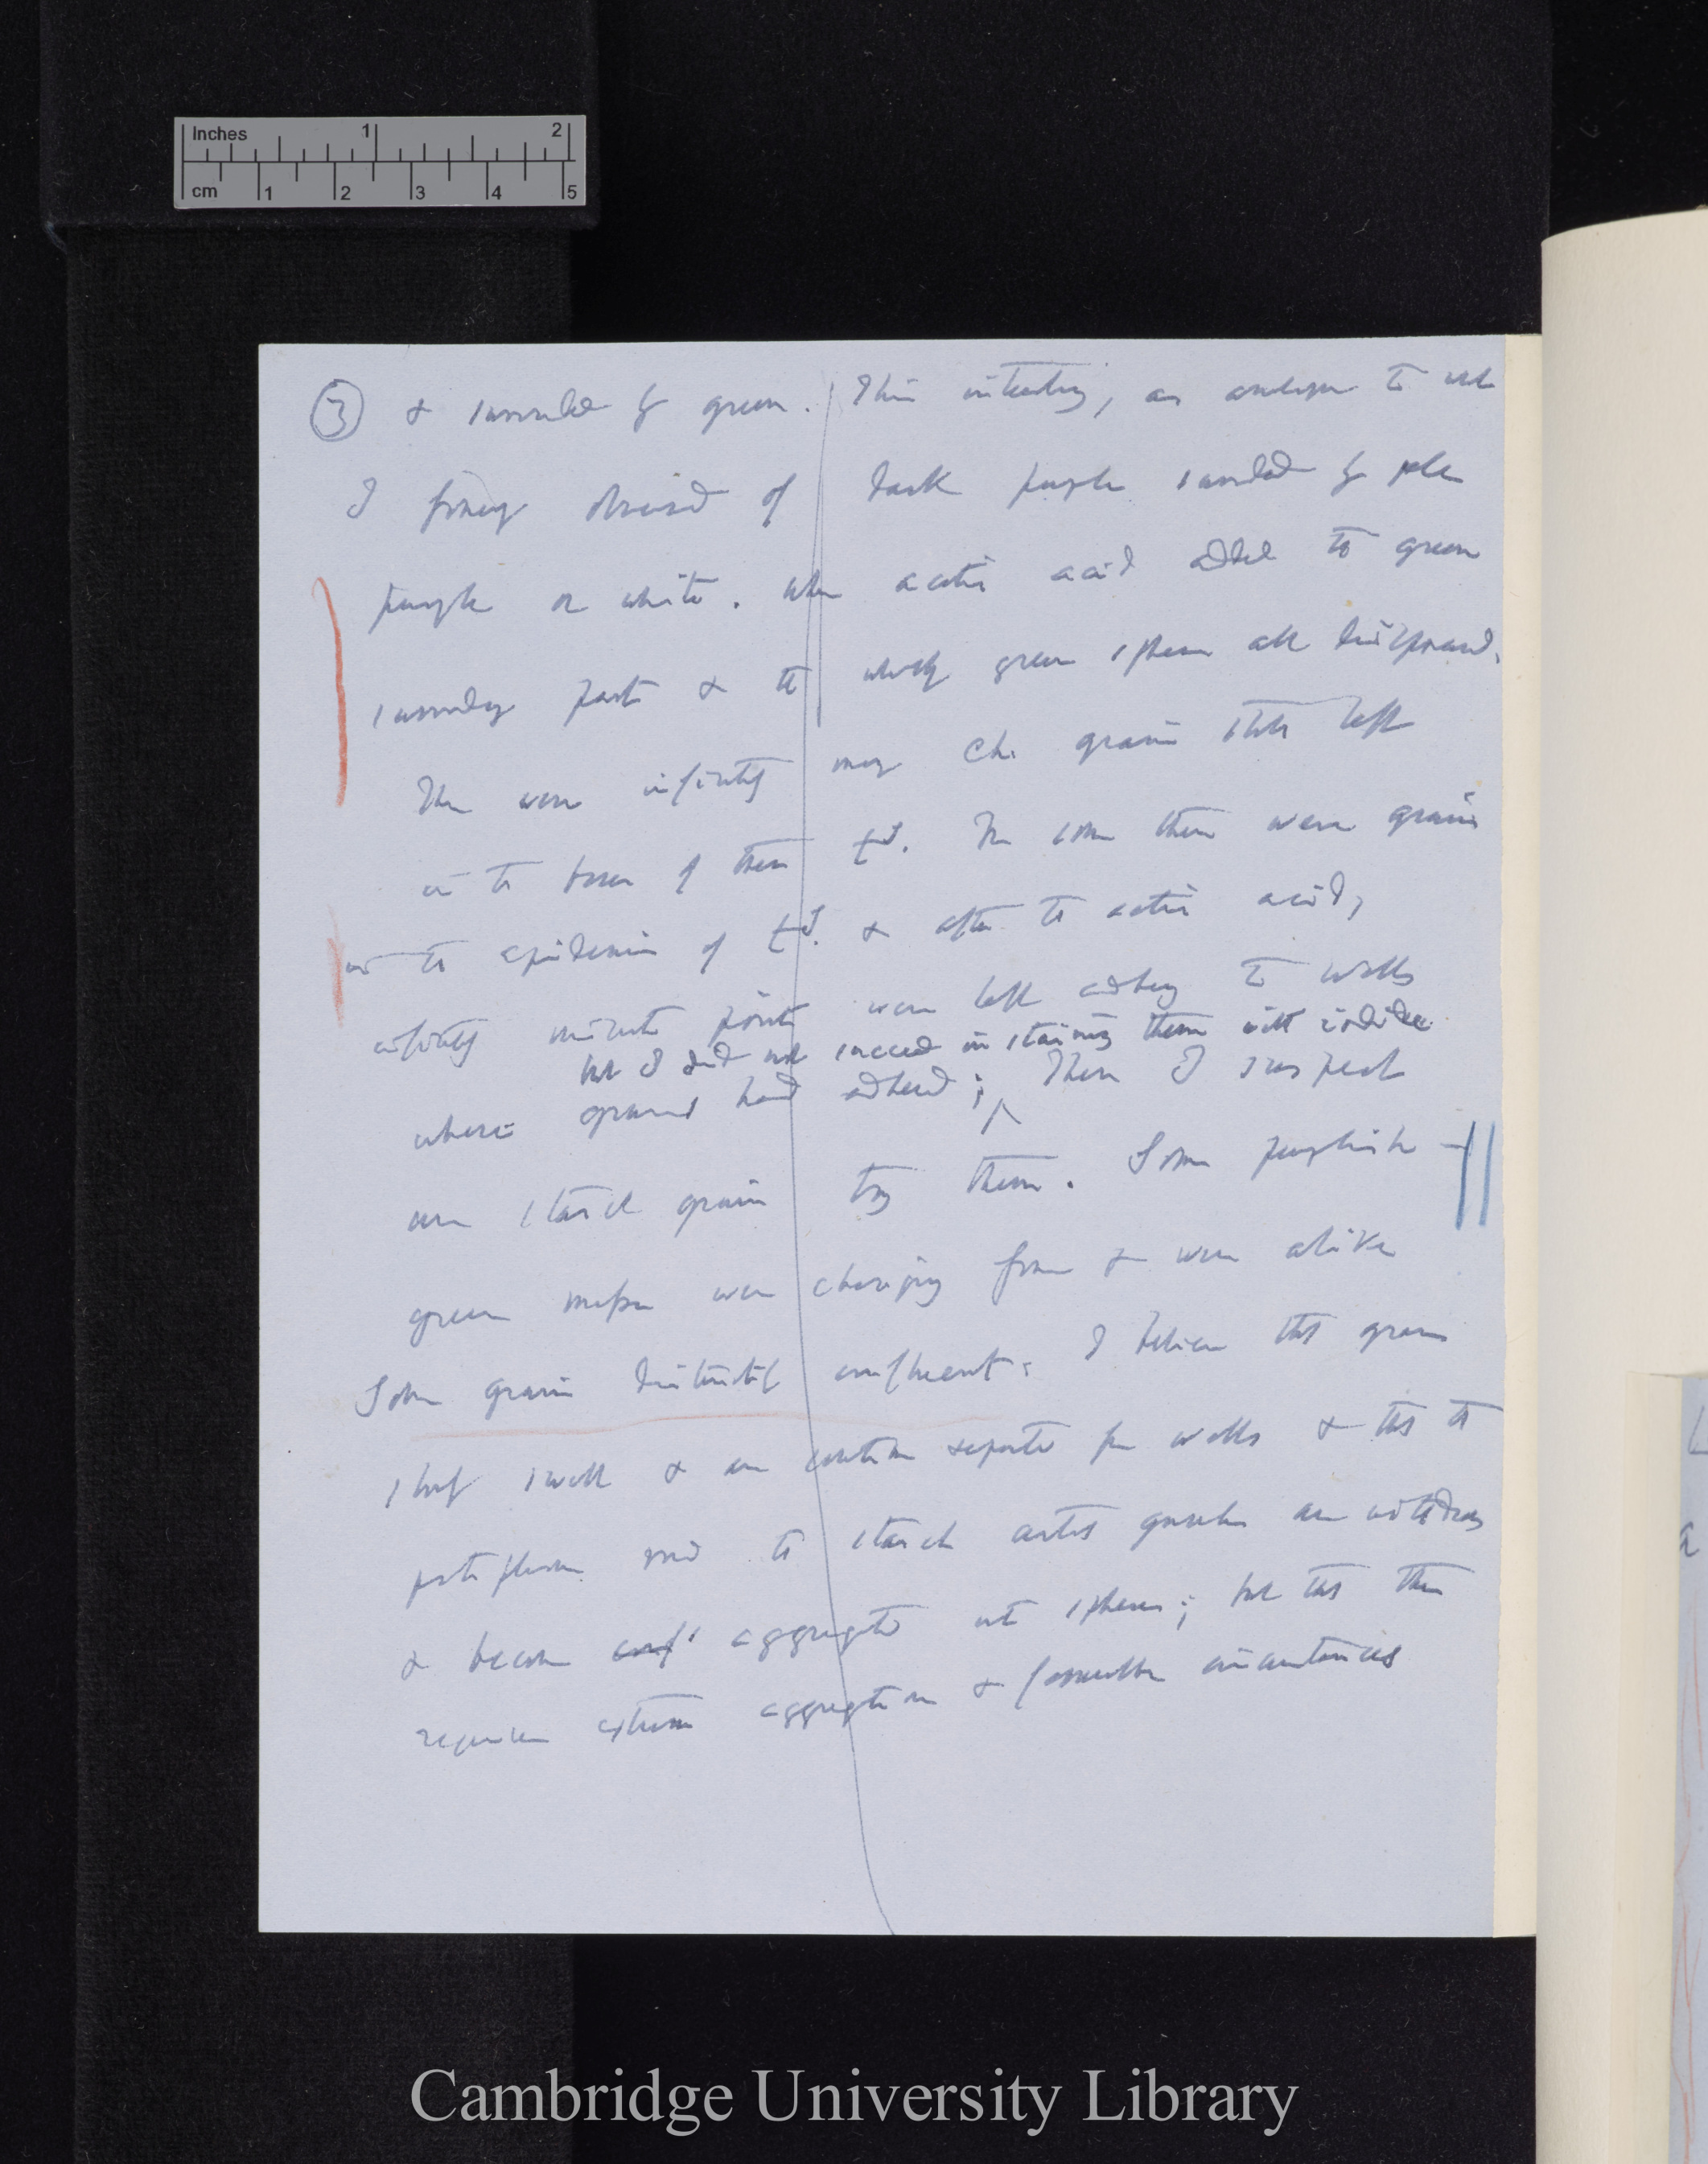 Inches 1 2
cm 1 2 3 4 5
③ & surrounded by green. This interesting, as analogous to what
I formerly observed of dark purple surrounded by pale
purple or white. When acetic acid added to green
surrounding part & the wholly green spheres all disappeared.
There were infinitely many Ch. grains still left
in the bases of these
In some there were grains
in the epidermis of & after the acetic acid,
infinitely minute points were left adhering to walls
but I did not succeed in staining them with iodide
where grains had adhered; These I suspect
are starch grains try them. Some purplish
green masses were changing form & were alive
Some grains distinctly confluent: I believe that grains
swell & are separate from walls & that the
protoplasm and the starch are withdrawn
& become conf aggregated into spheres; but that this
requires extreme aggregation & favourable circumstances
Cambridge University Library